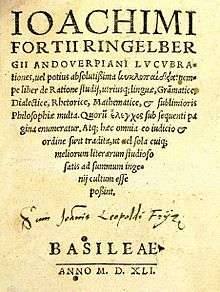 IOACHIMI
FORTII RINGELBER
GII ANDOVERPIANI LVCVBRA-
tiones, uel potius absolutissima κυκλοπαιδεία: nem-
pe liber de Ratione studij, utriusq; linguæ, Grāmatice,
Dialectice, Rhetorice, Mathematice, & sublimioris
Philosophiæ multa. Quorū ἔλεγχος sub sequenti pa
gina enumeratur. Atq; hæc omnia eo iudicio &
ordine sunt tradita, ut uel sola cuiq;
meliorum literarum studioso
satis ad summum inge-
nij cultum esse
possint.
Sum Johannis Leopoldi
BASILEAE
ANNO M. D. XLI.